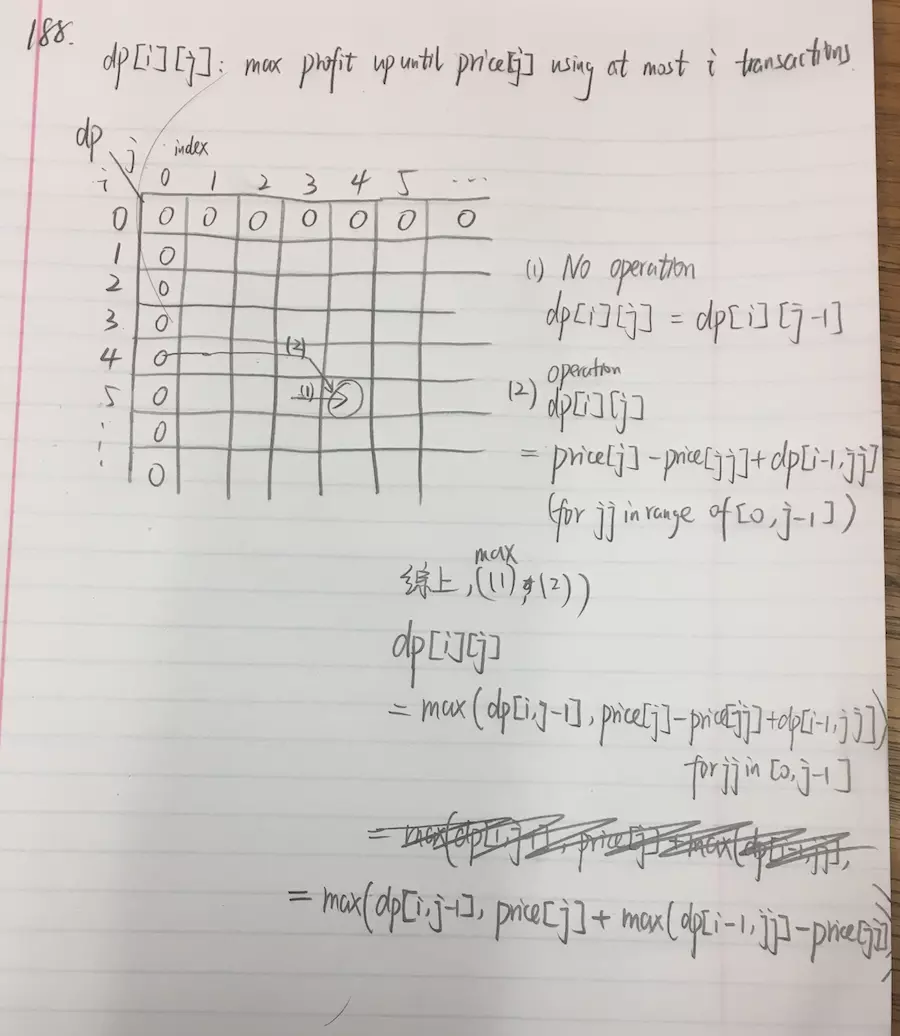 188.
dp[i][j]: max profit up until price[j] using at most i transactions.
dp j index
i 0 1 2 3 4 5 ...
0 0 0 0 0 0 0 0
1 0
2 0
3 0
4 0 (2)
5 0 (1)
0
0
(1) No operation
dp[i][j] = dp[i][j-1]
(2) operation
dp[i][j]
= price[j] - price[jj] + dp[i-1, jj]
(for jj in range of [0, j-1])
max
综上, ((1), (2))
dp[i][j]
= max(dp[i, j-1], price[j] - price[jj] + dp[i-1, jj])
for jj in [0, j-1]
= max(dp[i, j-1], price[j] + max(dp[i-1, jj],
= max(dp[i, j-1], price[j] + max(dp[i-1, jj] - price[jj]))